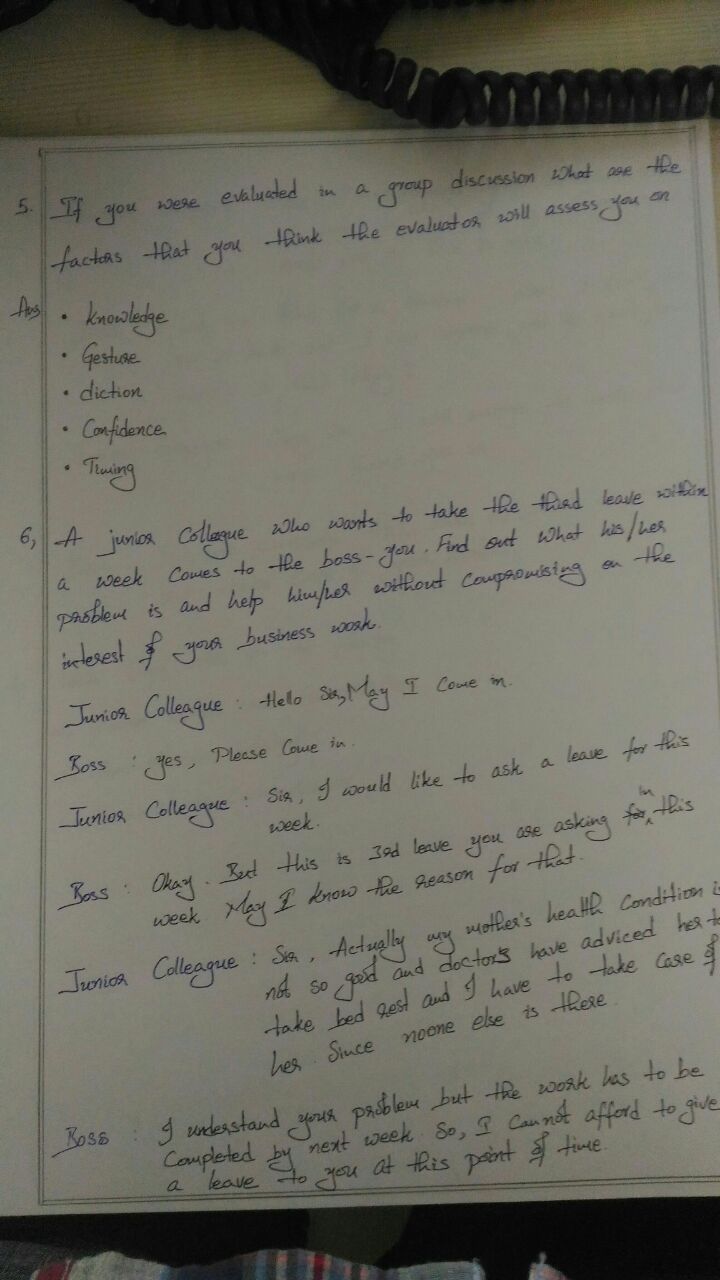 5. If you were evaluated in a group discussion what are the
factors that you think the evaluator will assess you on
Ans • knowledge
• Gesture
• diction
• Confidence
• Timing
6, A junior Colleague who wants to take the third leave within
a week comes to the boss - you. Find out what his/her
problem is and help him/her without compromising on the
interest of your business work.
Junior Colleague : Hello Sir, May I come in.
Boss : yes, Please come in.
Junior Colleague : Sir, I would like to ask a leave for this
week.
Boss : Okay. But this is 3rd leave you are asking for in this
week. May I know the reason for that.
Junior Colleague : Sir, Actually my mother's health condition is
not so good and doctors have adviced her to
take bed rest and I have to take care of
her. Since noone else is there.
Boss : I understand your problem but the work has to be
completed by next week. So, I cannot afford to give
a leave to you at this point of time.